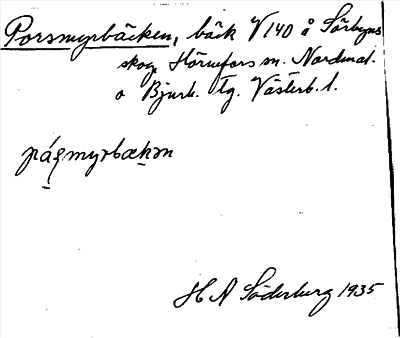 Porsmyrbäcken, bäck V140 å Sörbyns
skog, Hörnefors sn. Nordmal.
o Bjurh. tg. Västerb. l.
HA Söderberg 1935